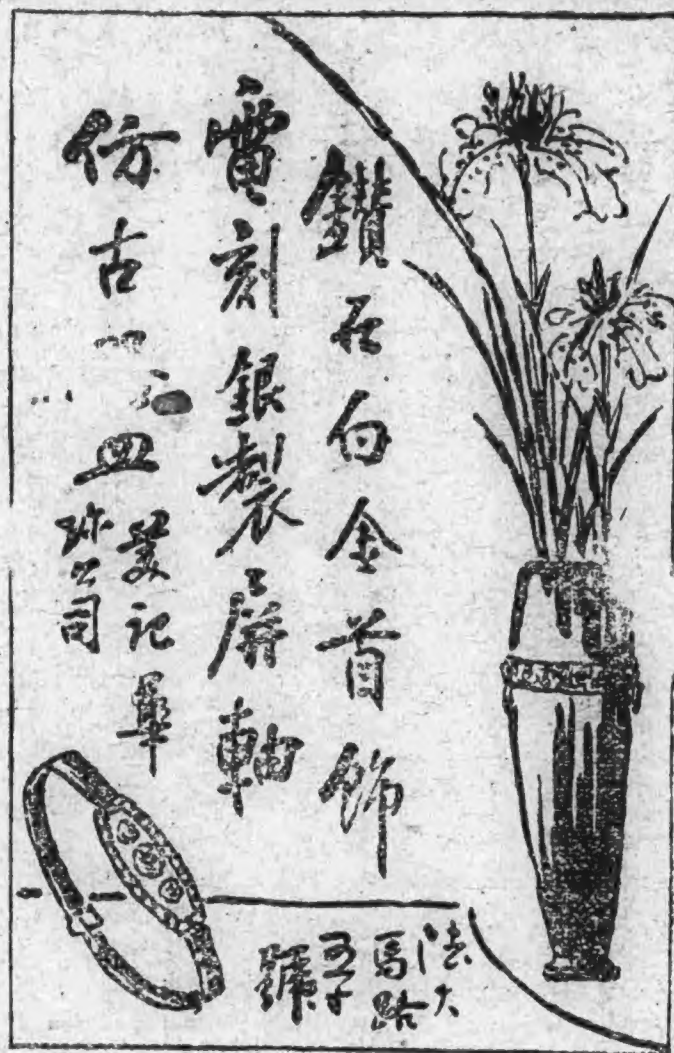 鑽石白金首飾
雷刻銀製屏軸
仿古 皿
美記畢
珎公司
法大
馬路
五十
號